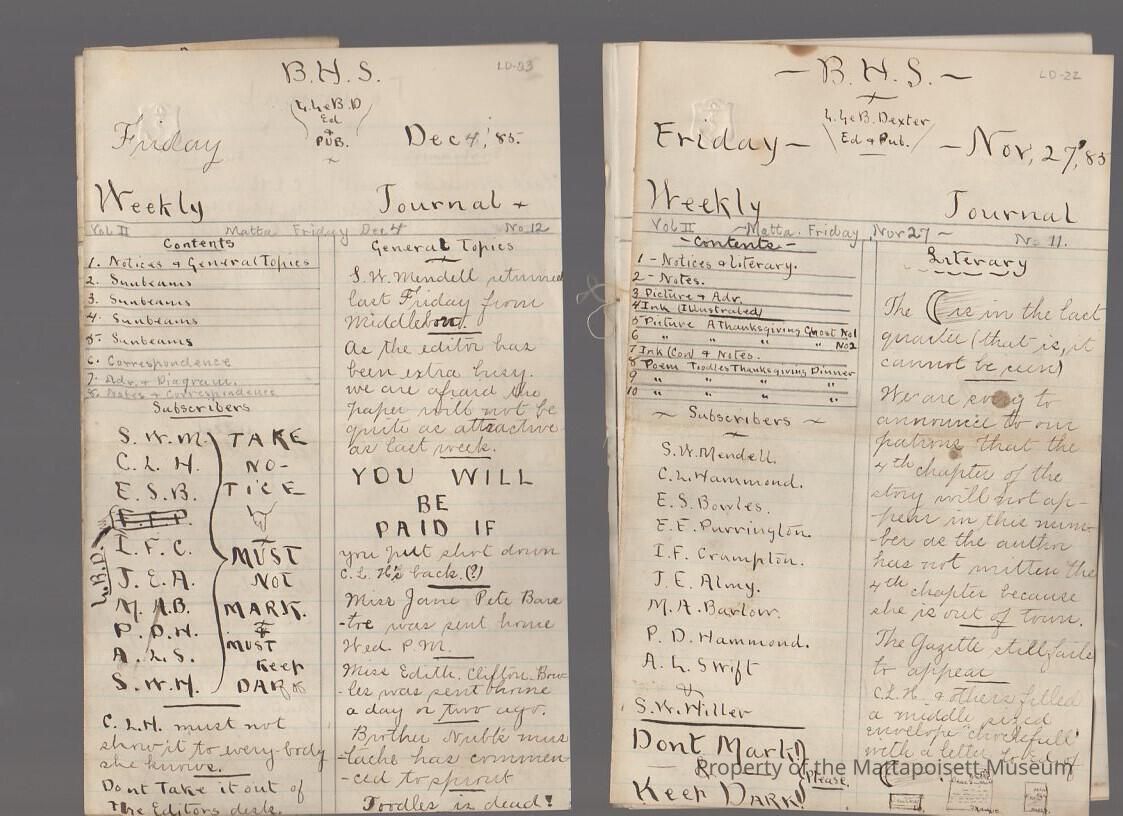 B.H.S.
LD-23
L. LeB. D
Ed
&
PUB.
Friday
Dec 4, '85.
Weekly
Journal
Vol II
Matta Friday Dec 4
No 12
Contents
1. Notices & General Topics
2. Sunbeams
3. Sunbeams
4. Sunbeams
5- Sunbeams
6. Correspondence
7. Adv. & Diagram.
8. Notes & Correspondence
Subscribers
S. W. M.
C. L. H.
E. S. B.
I. F. C.
J. E. A.
M. A. B.
P. D. H.
A. L. S.
S. W. H.
TAKE
NO-
TICE
MUST
NOT
MARK.
&
MUST
Keep
DARK
C. L. H. must not
show it to every-body
she knows.
Dont Take it out of
The Editors desk.
General Topics
S. W. Mendell returned
last Friday from
Middleboro.
As the editor has
been extra busy.
we are afraid the
paper will not be
quite as attractive
as last week.
YOU WILL
BE
PAID IF
you put shot down
C. L. H's back. (?)
Miss Jane Pete Bars
-tre was sent home
Wed. P.M.
Miss Edith. Clifton. Bow-
-les was sent home
a day or two ago.
Brother Nubb's mus
-tache has commen-
-ced to sprout
Toodles is dead!
- B. H. S. -
LD-22
L. LeB. Dexter
Ed & Pub.
Friday -
- Nov, 27, '85
Weekly
Journal
Vol II
- Matta. Friday Nov 27 -
No 11.
- Contents -
1 - Notices & Literary.
2 - Notes.
3 Picture & Adv.
4 Ink (Illustrated)
5 Picture A Thanksgiving Ghost No1
6 " " " " No2
7 Ink (Con) & Notes.
8 Poem Toodles Thanksgiving Dinner
9 " " " "
10 " " " "
~ Subscribers ~
S. W. Mendell.
C. L. Hammond.
E. S. Bowles.
E. E. Purrington.
I. F. Crampton.
J. E. Almy.
M. A. Barlow.
P. D. Hammond.
A. L. Swift
&
S. W. Hiller
Dont Mark it
(Please.
Keep DARK!
Literary
The is in the last
quarter (that is, it
cannot be seen)
We are sorry to
announce to our
patrons that the
4th chapter of the
story will not ap-
-pear in this num-
-ber as the author
has not written the
4th chapter because
she is out of town.
The Gazette still fails
to appear
C. L. H. & others filled
a middle sized
envelope "chock full"
with a letter to
Property of the Mattapoisett Museum